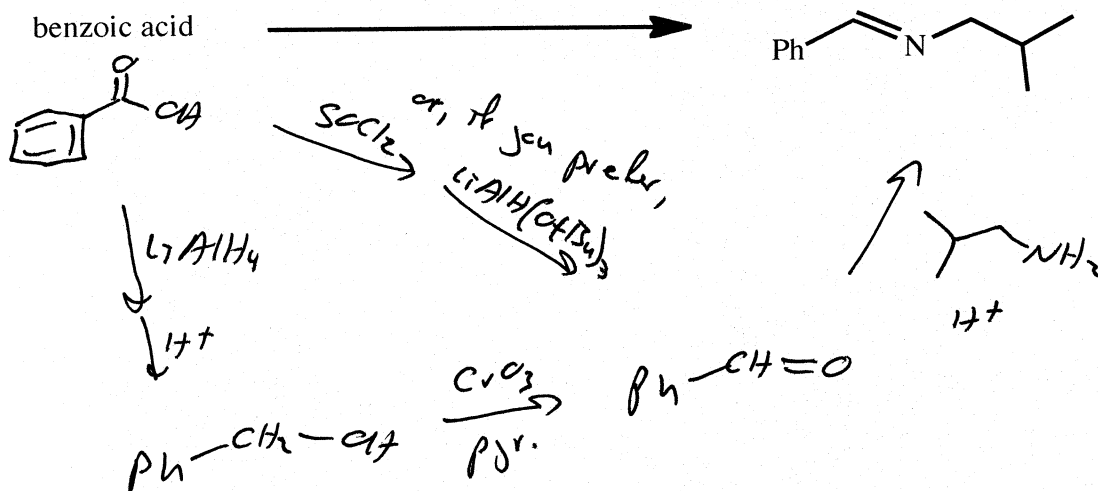 benzoic acid
Ph N
O
OH
SOCl2
or, if you prefer,
LiAlH(OtBu)3
LiAlH4
H+
NH2
H+
Ph CH2 OH
CrO3
pyr.
Ph CH=O